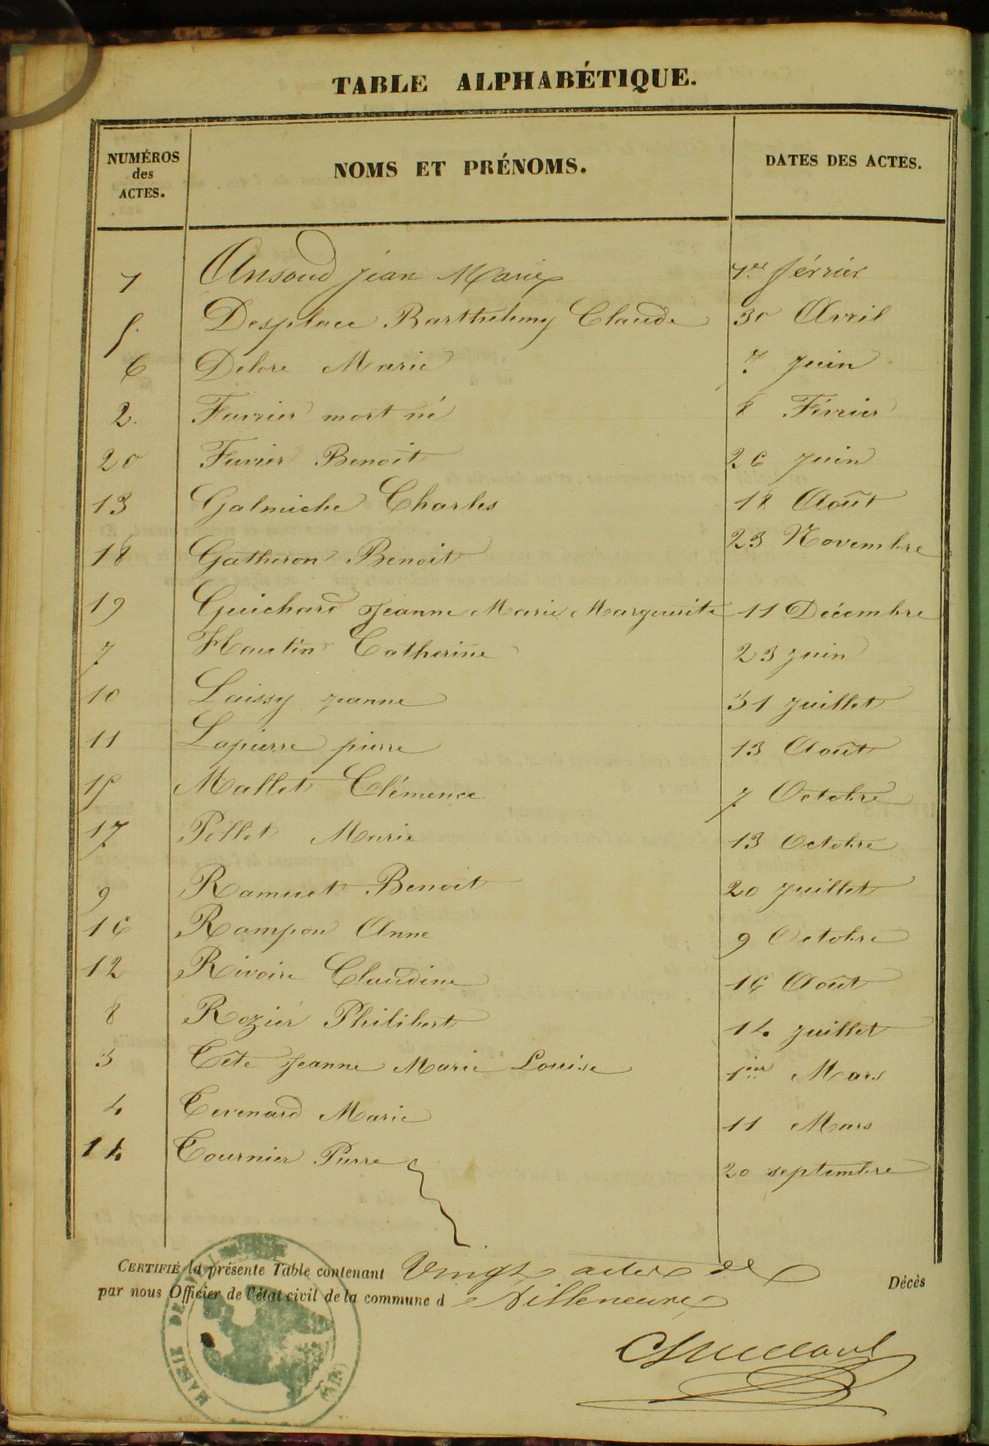 TABLE ALPHABÉTIQUE.
NUMÉROS des ACTES. NOMS ET PRÉNOMS. DATES DES ACTES.
1 Ansoud jean Marie 1er février
5 Desplace Barthélemy Claude 30 Avril
6 Delore Marie 7 juin
2 Furrier mort né 8 Février
20 Furier Benoit 26 juin
13 Galmiche Charles 18 Août
18 Gatheron Benoit 23 Novembre
19 Guichard Jeanne Marie Marguerite 11 Décembre
7 Hautin Catherine 23 juin
10 Laissy jeanne 31 juillet
11 Lapierre pierre 13 Août
15 Mallet Clémence 7 Octobre
17 Pellet Marie 13 Octobre
9 Ramuet Benoit 20 juillet
16 Rampon Anne 9 Octobre
12 Rivoire Claudine 16 Août
8 Rozier Philibert 14 juillet
3 Tête Jeanne Marie Louise 1ier Mars
4 Tevenard Marie 11 Mars
14 Tournier Pierre 20 septembre
CERTIFIÉ la présente Table contenant Vingt actes de Décès
par nous Officier de l'état civil de la commune d e Villeneuve
MAIRIE DE (AIN)